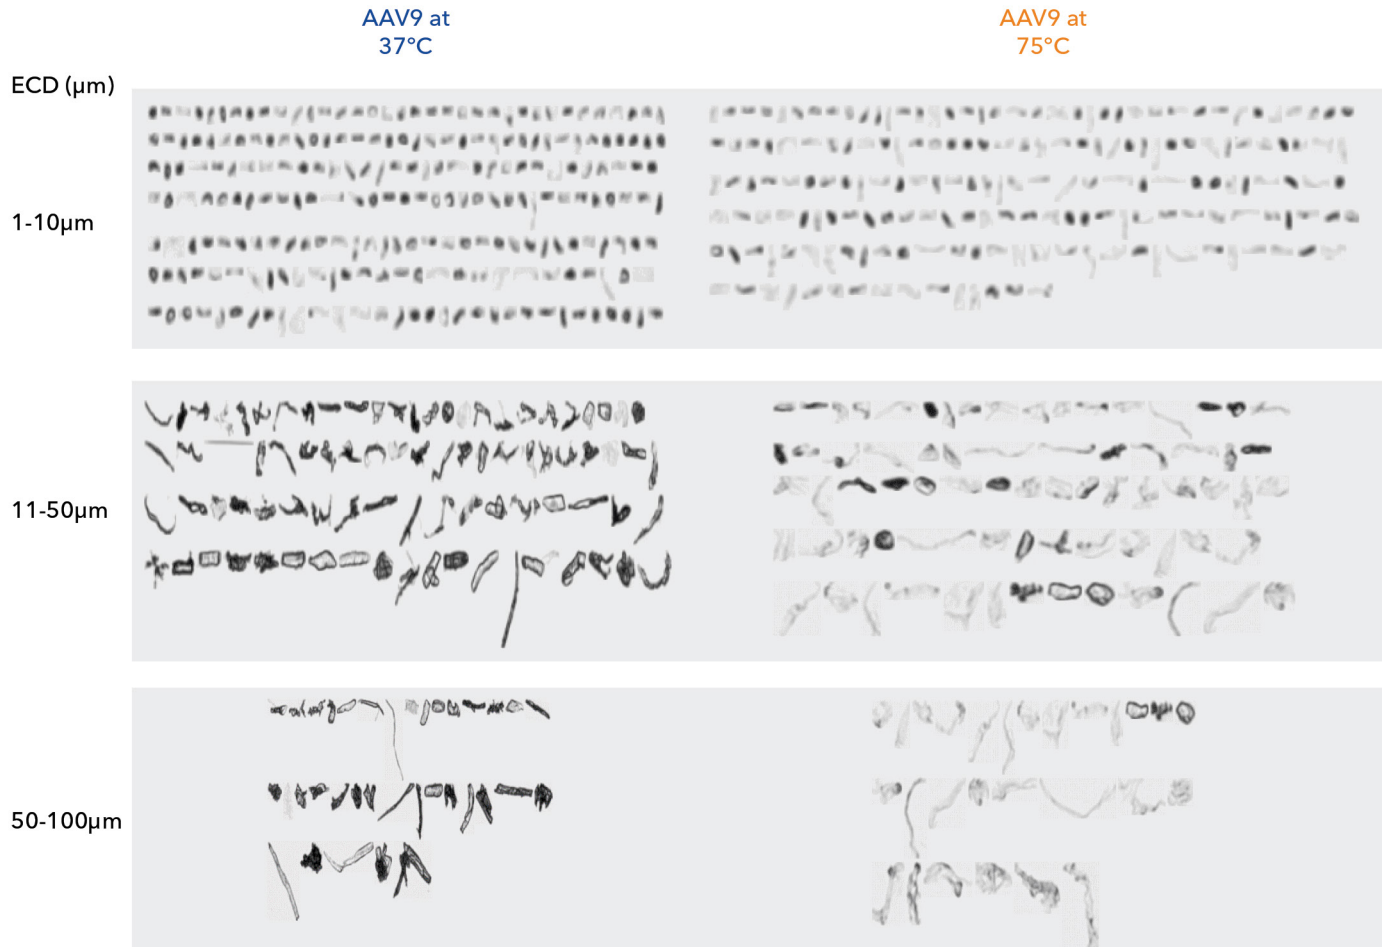 AAV9 at
37°C
AAV9 at
75°C
ECD (µm)
1-10µm
11-50µm
50-100µm